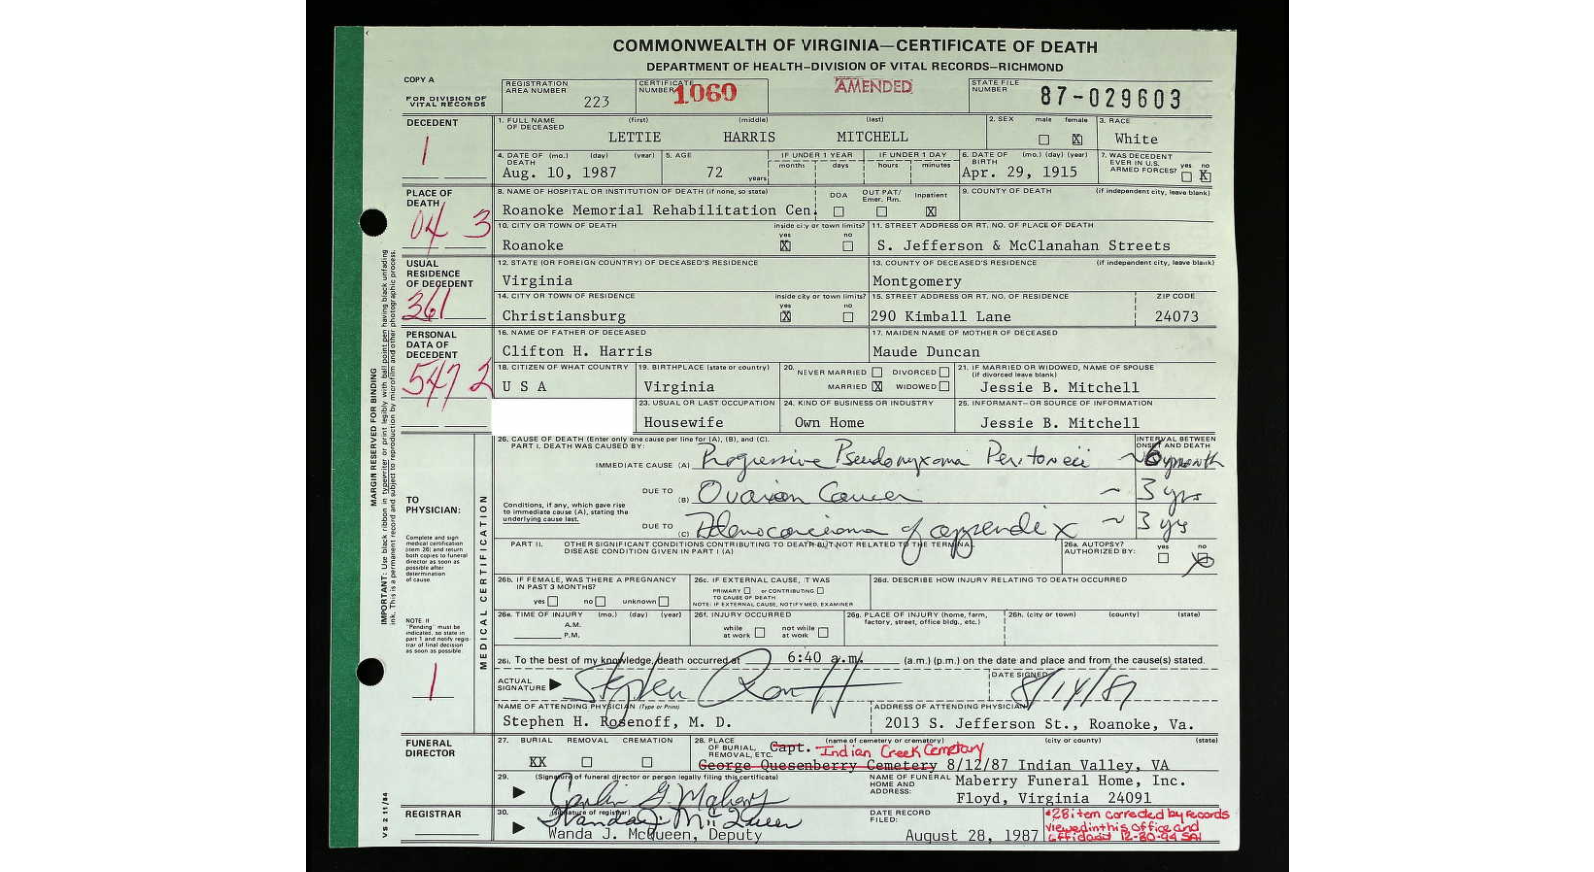 COMMONWEALTH OF VIRGINIA—CERTIFICATE OF DEATH
DEPARTMENT OF HEALTH—DIVISION OF VITAL RECORDS—RICHMOND
COPY A
FOR DIVISION OF VITAL RECORDS
REGISTRATION AREA NUMBER 223
CERTIFICATE NUMBER 1060
AMENDED
STATE FILE NUMBER 87-029603
DECEDENT
1
1. FULL NAME OF DECEASED (first) (middle) (last)
LETTIE HARRIS MITCHELL
2. SEX male female X
3. RACE White
4. DATE OF DEATH (mo.) (day) (year) Aug. 10, 1987
5. AGE 72 years
IF UNDER 1 YEAR months days
IF UNDER 1 DAY hours minutes
6. DATE OF BIRTH (mo.) (day) (year) Apr. 29, 1915
7. WAS DECEDENT EVER IN U.S. ARMED FORCES? yes no X
PLACE OF DEATH
04 3
8. NAME OF HOSPITAL OR INSTITUTION OF DEATH (if none, so state)
Roanoke Memorial Rehabilitation Cen.
DOA OUT PAT/ Emer. Rm. Inpatient X
9. COUNTY OF DEATH (if independent city, leave blank)
10. CITY OR TOWN OF DEATH inside city or town limits? yes X no
Roanoke
11. STREET ADDRESS OR RT. NO. OF PLACE OF DEATH
S. Jefferson & McClanahan Streets
USUAL RESIDENCE OF DECEDENT
361
12. STATE (OR FOREIGN COUNTRY) OF DECEASED'S RESIDENCE
Virginia
13. COUNTY OF DECEASED'S RESIDENCE (if independent city, leave blank)
Montgomery
14. CITY OR TOWN OF RESIDENCE inside city or town limits? yes X no
Christiansburg
15. STREET ADDRESS OR RT. NO. OF RESIDENCE ZIP CODE
290 Kimball Lane 24073
PERSONAL DATA OF DECEDENT
547 2
16. NAME OF FATHER OF DECEASED
Clifton H. Harris
17. MAIDEN NAME OF MOTHER OF DECEASED
Maude Duncan
18. CITIZEN OF WHAT COUNTRY
U S A
19. BIRTHPLACE (state or country)
Virginia
20. NEVER MARRIED DIVORCED
MARRIED X WIDOWED
21. IF MARRIED OR WIDOWED, NAME OF SPOUSE (if divorced leave blank)
Jessie B. Mitchell
23. USUAL OR LAST OCCUPATION
Housewife
24. KIND OF BUSINESS OR INDUSTRY
Own Home
25. INFORMANT—OR SOURCE OF INFORMATION
Jessie B. Mitchell
MARGIN RESERVED FOR BINDING
IMPORTANT: Use black ribbon in typewriter or print legibly with ball point pen having black unfading
ink. This is a permanent record and subject to reproduction by microfilm and other photographic process.
VS 2 11/84
TO PHYSICIAN:
Complete and sign
medical certification
(item 26) and return
both copies to funeral
director as soon as
possible after
determination
of cause
NOTE: If
"Pending" must be
indicated, so state in
part 1 and notify regis
trar of final decision
as soon as possible.
1
MEDICAL CERTIFICATION
26. CAUSE OF DEATH (Enter only one cause per line for (A), (B), and (C).
PART I. DEATH WAS CAUSED BY:
INTERVAL BETWEEN ONSET AND DEATH
IMMEDIATE CAUSE (A) Progressive Pseudomyxoma Peritoneii ~ 6 month
DUE TO (B) Ovarian Cancer ~ 3 yrs
Conditions, if any, which gave rise
to immediate cause (A), stating the
underlying cause last.
DUE TO (C) Adenocarcinoma of appendix ~ 3 yrs
PART II. OTHER SIGNIFICANT CONDITIONS CONTRIBUTING TO DEATH BUT NOT RELATED TO THE TERMINAL
DISEASE CONDITION GIVEN IN PART I (A)
26a. AUTOPSY? AUTHORIZED BY: yes no X
26b. IF FEMALE, WAS THERE A PREGNANCY IN PAST 3 MONTHS?
yes no unknown
26c. IF EXTERNAL CAUSE, IT WAS
PRIMARY or CONTRIBUTING
TO CAUSE OF DEATH
NOTE: IF EXTERNAL CAUSE, NOTIFY MED. EXAMINER
26d. DESCRIBE HOW INJURY RELATING TO DEATH OCCURRED
26e. TIME OF INJURY (mo.) (day) (year)
A.M.
P.M.
26f. INJURY OCCURRED
while at work not while at work
26g. PLACE OF INJURY (home, farm, factory, street, office bldg., etc.)
26h. (city or town) (county) (state)
26i. To the best of my knowledge, death occurred at 6:40 a.m. (a.m.) (p.m.) on the date and place and from the cause(s) stated.
ACTUAL SIGNATURE
DATE SIGNED 8/14/87
NAME OF ATTENDING PHYSICIAN (Type or Print)
Stephen H. Rosenoff, M. D.
ADDRESS OF ATTENDING PHYSICIAN
2013 S. Jefferson St., Roanoke, Va.
FUNERAL DIRECTOR
27. BURIAL REMOVAL CREMATION
KK
28. PLACE OF BURIAL, REMOVAL, ETC. (name of cemetery or crematory) (city or county) (state)
Capt. Indian Creek Cemetary
George Quesenberry Cemetery 8/12/87 Indian Valley, VA
29. (Signature of funeral director or person legally filing this certificate)
NAME OF FUNERAL HOME AND ADDRESS:
Maberry Funeral Home, Inc.
Floyd, Virginia 24091
REGISTRAR
30. (signature of registrar)
Wanda J. McQueen
Wanda J. McQueen, Deputy
DATE RECORD FILED:
August 28, 1987
*28 item corrected by records
viewed in this office and
affidavit 12-30-94 SAI